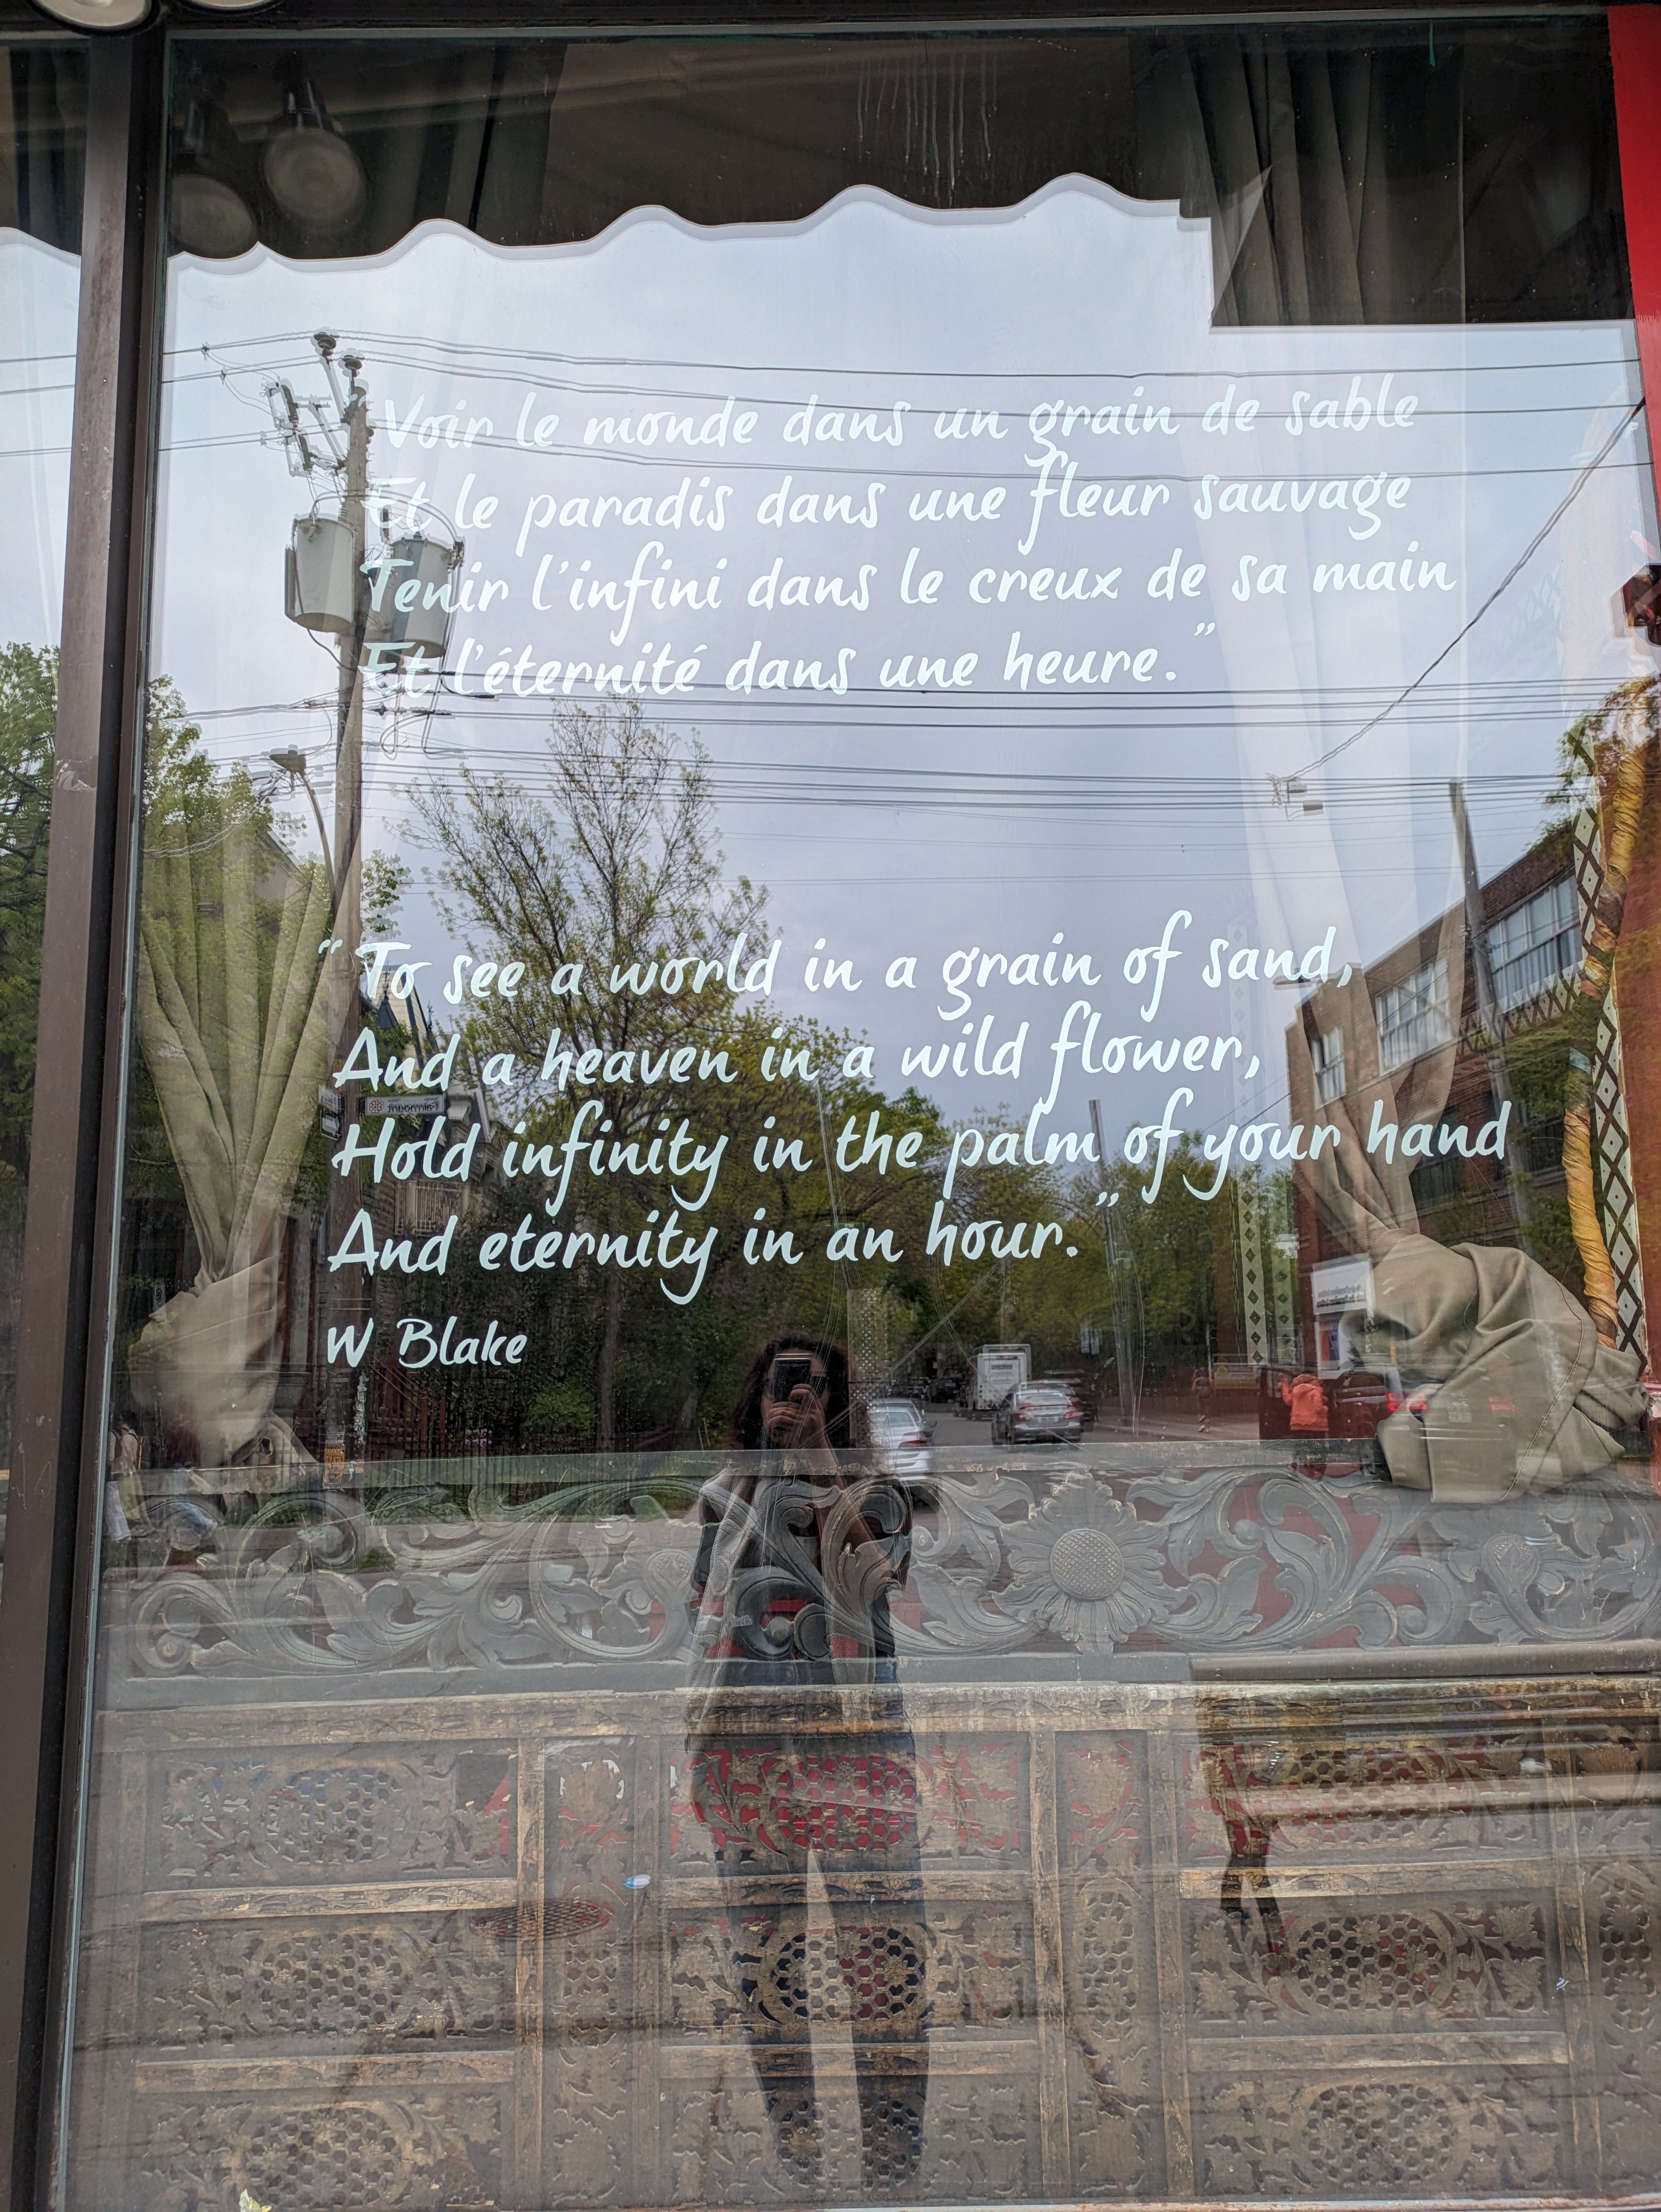 “Voir le monde dans un grain de sable
Et le paradis dans une fleur sauvage
Tenir l'infini dans le creux de sa main
Et l'éternité dans une heure.”
“To see a world in a grain of sand,
And a heaven in a wild flower,
Hold infinity in the palm of your hand
And eternity in an hour.”
W Blake